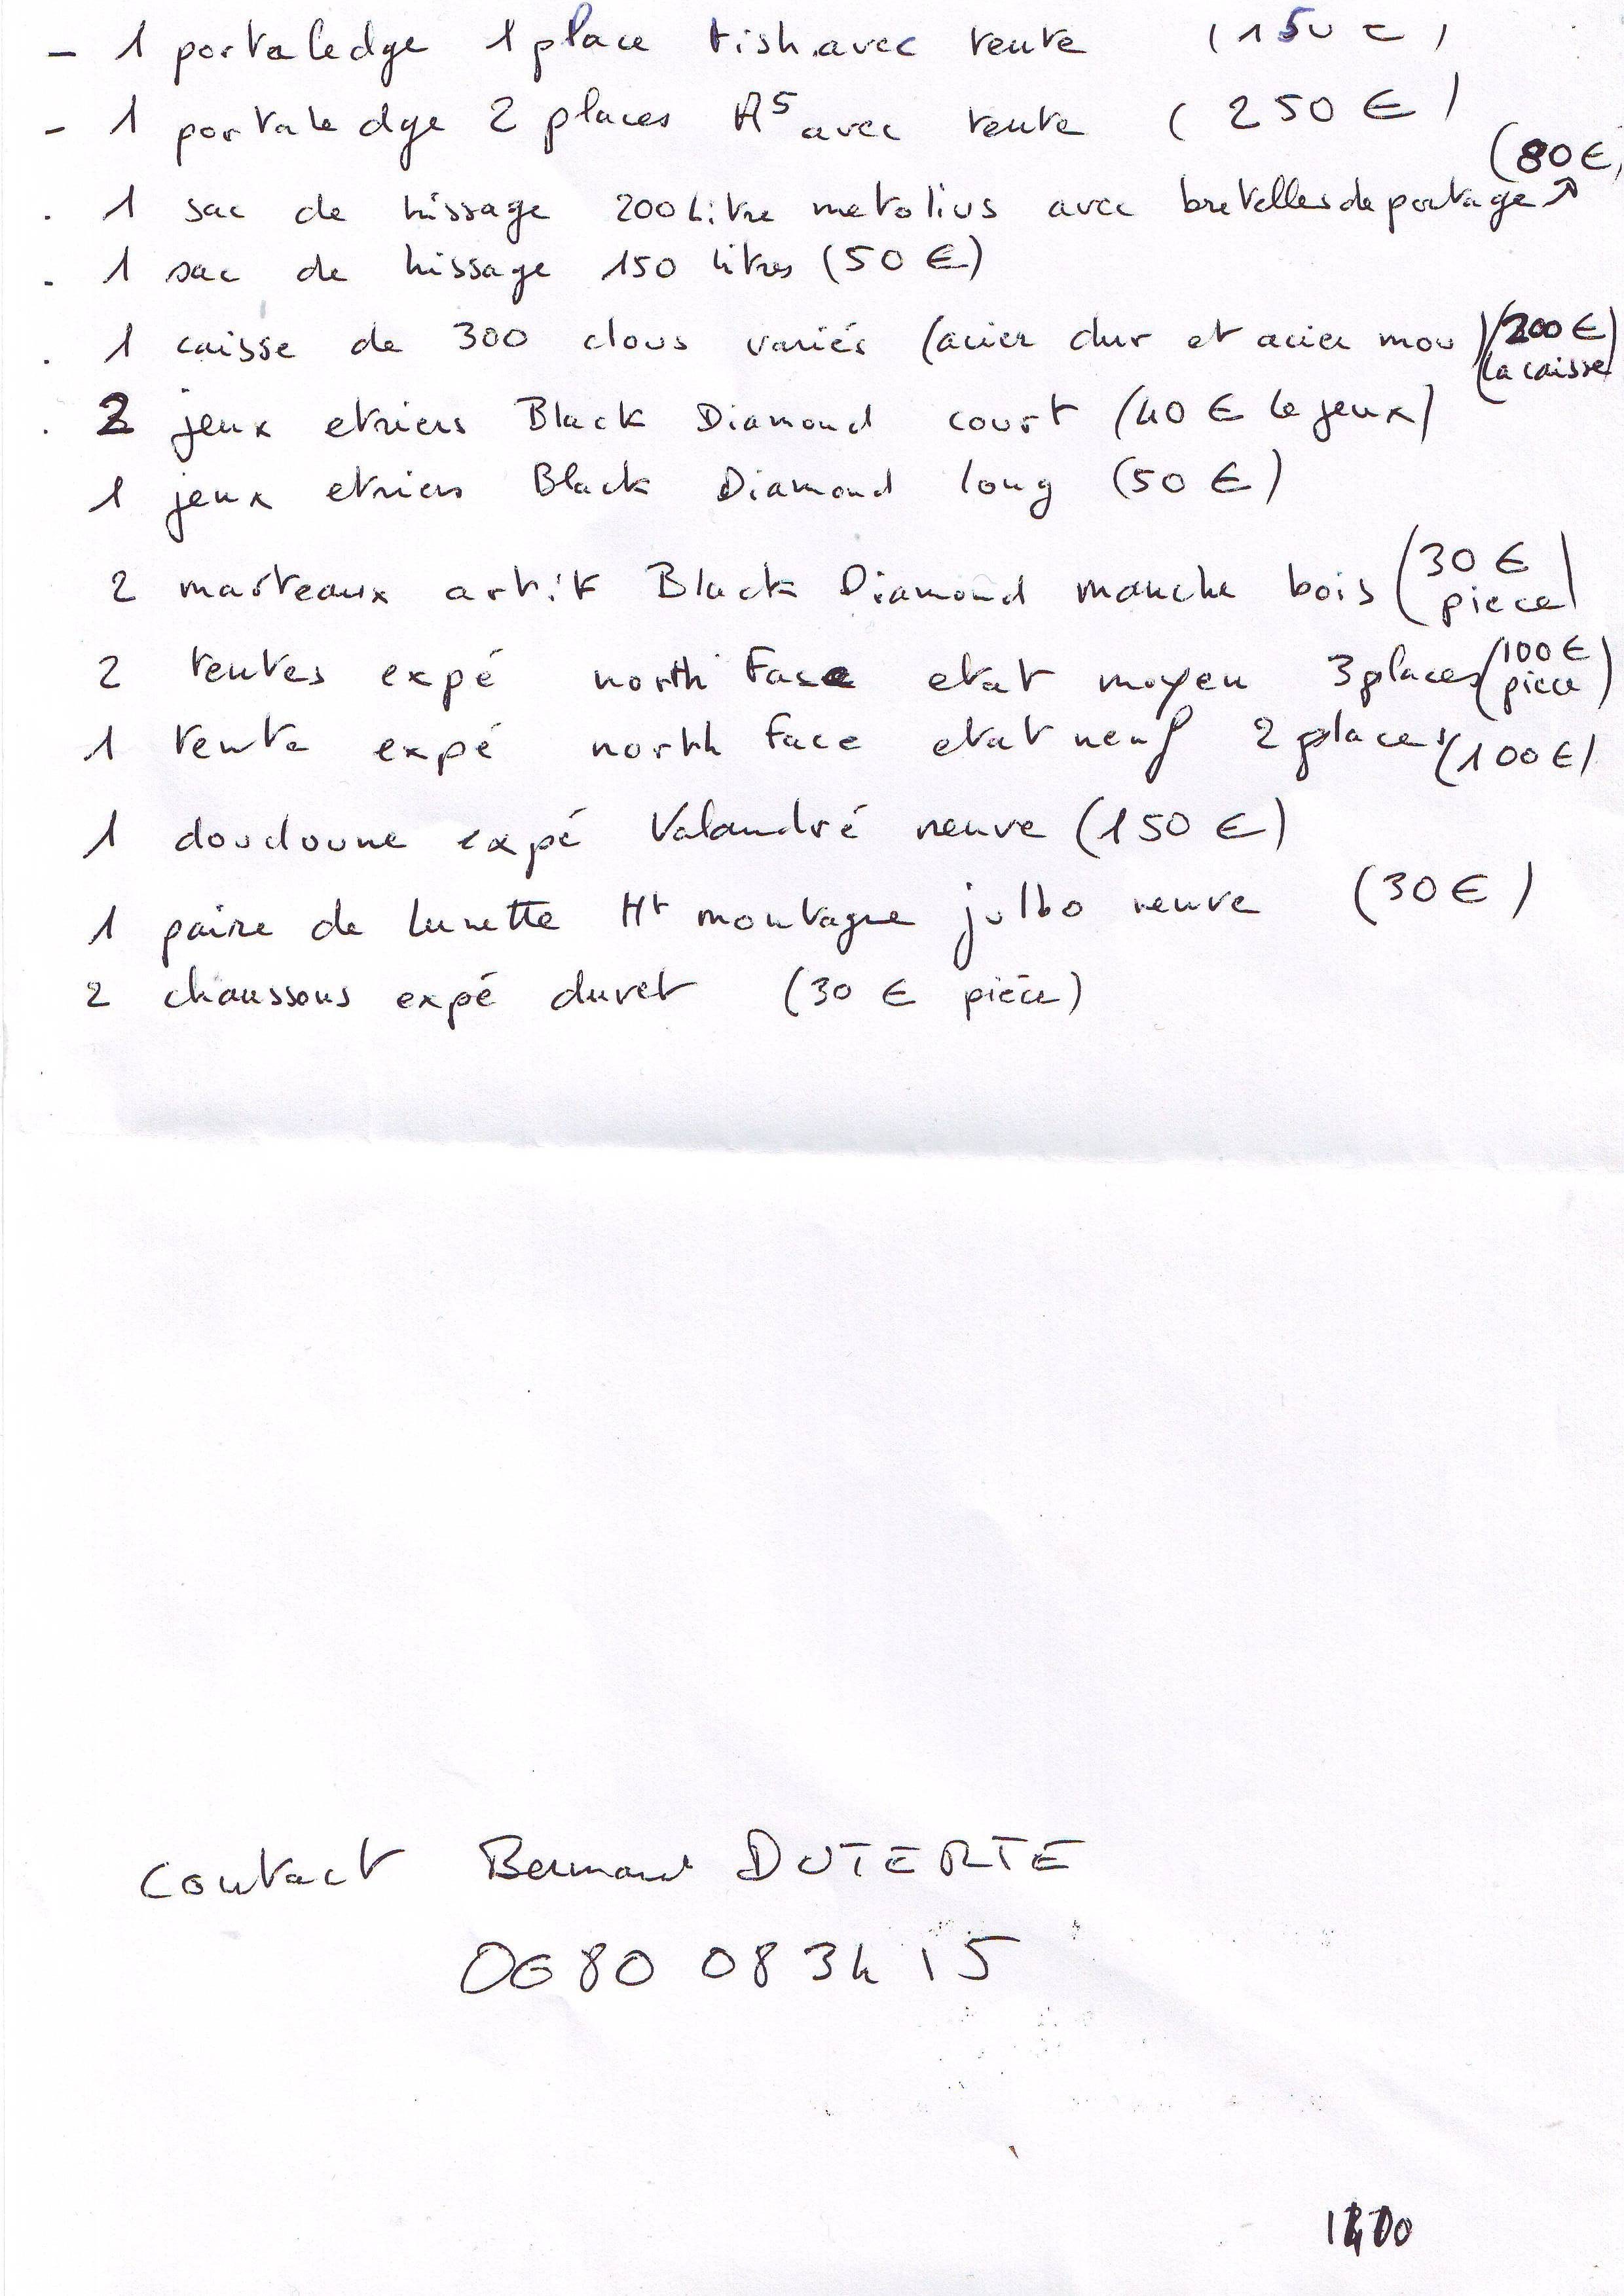 - 1 portaledge 1 place fish avec tente (150 €)
- 1 portaledge 2 places A5 avec tente (250 €)
(80 €)
. 1 sac de hissage 200 Litre metolius avec bretelles de portage ↗
. 1 sac de hissage 150 litres (50 €)
. 1 caisse de 300 clous variés (acier dur et acier mou) (200 €)
(la caisse
. 2 jeux etriers Black Diamond court (40 € le jeux)
1 jeux etriers Black Diamond long (50 €)
2 marteaux artif Black Diamond manche bois (30 € piece)
2 tentes expé north Face etat moyen 3 places (100 € piece)
1 tente expé north Face etat neuf 2 places (100 €)
1 doudoune expé Valandré neuve (150 €)
1 paire de lunette Ht montagne julbo neuve (30 €)
2 chaussons expé duvet (30 € pièce)
Contact Bernard DUTERTE
06 80 08 34 15